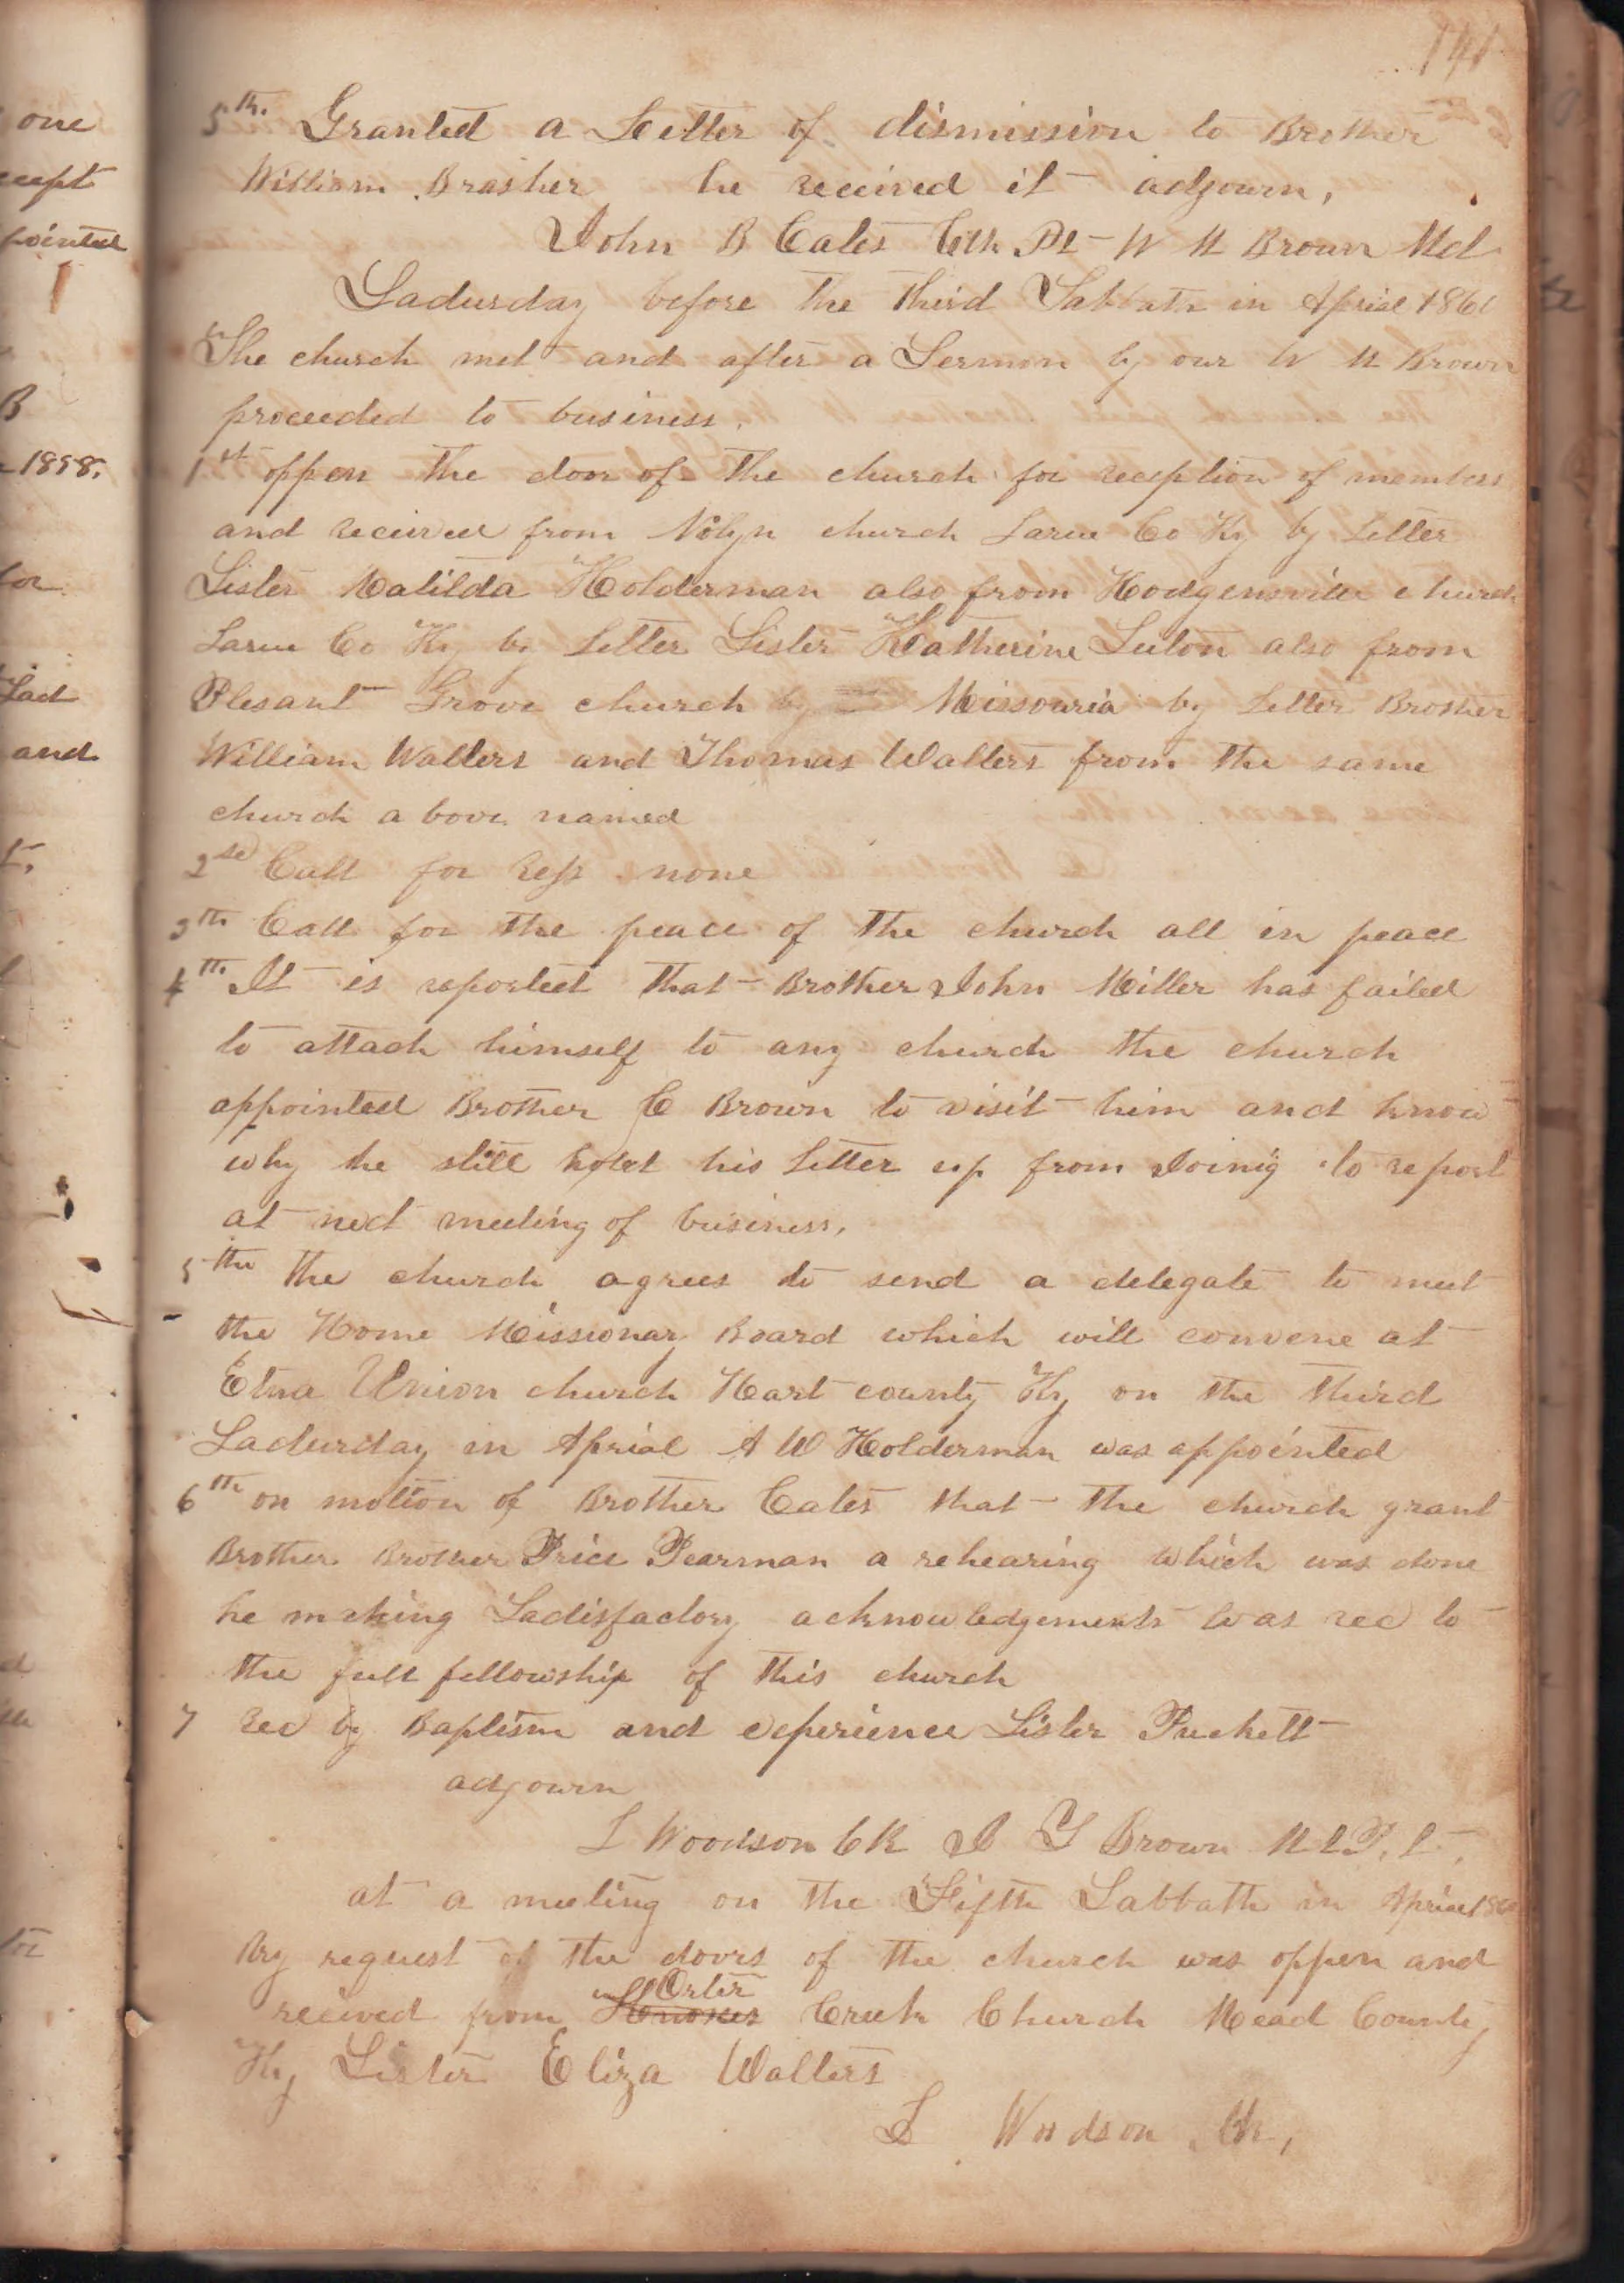 141
one
5th. Granted a Letter of dismission to Brother
William Brasher he received it adjourn,
cept
pointed
John B Cates Clk Pt W M Brown Md
Saturday before the third Sabbath in Aprial 186
The church met and after a Sermon by our W M Brown
proceeded to business.
B
1858.
1st oppen the door of the church for reception of members
and received from Nolyn church Larue Co Ky by Letter
for
Sister Matilda Holderman also from Hodgensville church
Larue Co Ky by Letter Sister Katherine Luton also from
Plesant Grove church by Missouria by Letter Brother
and
William Walters and Thomas Walters from the same
church a bove named
2nd Call for Reff none
3th Call for the peace of the church all in peace
4th It is reported that Brother John Miller has failed
to attach himself to any church the church
appointed Brother C Brown to visit him and know
why he still hold his Letter up from Joinig to report
at next meeting of business.
5th the church agrees to send a delegate to meet
the Home Missionary Board which will convene at
Etna Union church Hart county Ky on the third
Saturday in Aprial A W Holderman was appointed
6th on motion of Brother Cates that the church grant
Brother Brother Price Pearman a rehearing which was done
he making Sadisfactory acknowledgements was rec to
the full fellowship of this church
7 Rec by Baptism and experience Sister Puckett
adjourn
L Woodson Ck J G Brown
at a meeting on the Fifth Sabbath in Aprial
By request of the doors of the church was oppen and
Orter
received from Creek Church Mead County
Ky Sister Eliza Walters
L Woodson Ck,